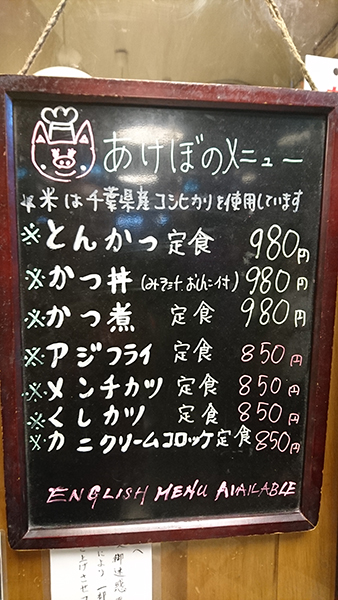 あけぼのメニュー
米は千葉県産コシヒカリを使用しています
※とんかつ定食 980円
※かつ丼(みそ汁、おしんこ付) 980円
※かつ煮 定食 980円
※アジフライ 定食 850円
※メンチカツ 定食 850円
※くしカツ 定食 850円
※カニクリームコロッケ定食 850円
ENGLISH MENU AVAILABLE